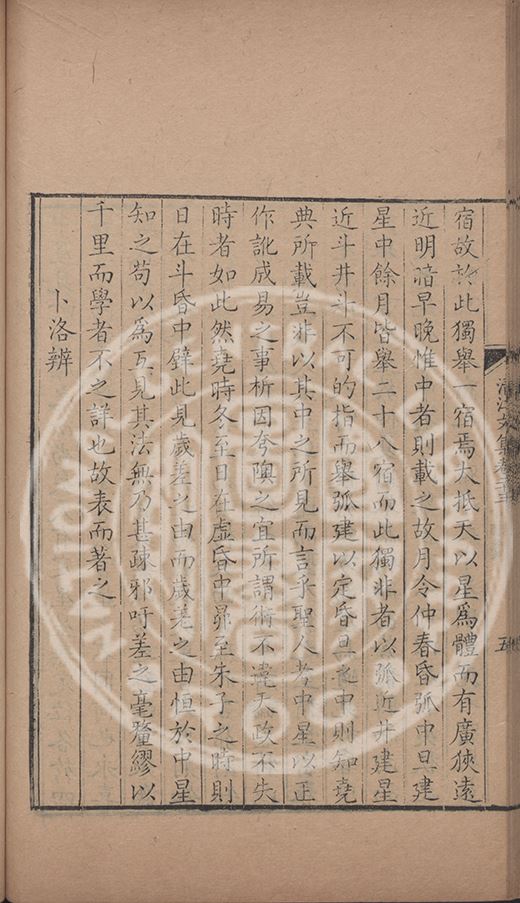 宿故於此獨舉一宿焉大抵天以星爲體而有廣狹遠
近明暗早晚惟中者則載之故月令仲春昏弧中旦建
星中餘月皆舉二十八宿而此獨非者以弧近井建星
近斗井斗不可的指而舉弧建以定昏旦也中則知堯
典所載豈非以其中之所見而言乎聖人考中星以正
作訛成易之事析因夸隩之宜所謂術不違天政不失
時者如此然堯時冬至日在虛昏中昴至朱子之時則
日在斗昏中壁此見歲差之由而歲差之由恒於中星
知之苟以爲互見其法無乃甚疎邪吁差之毫釐繆以
千里而學者不之詳也故表而著之
卜洛辨